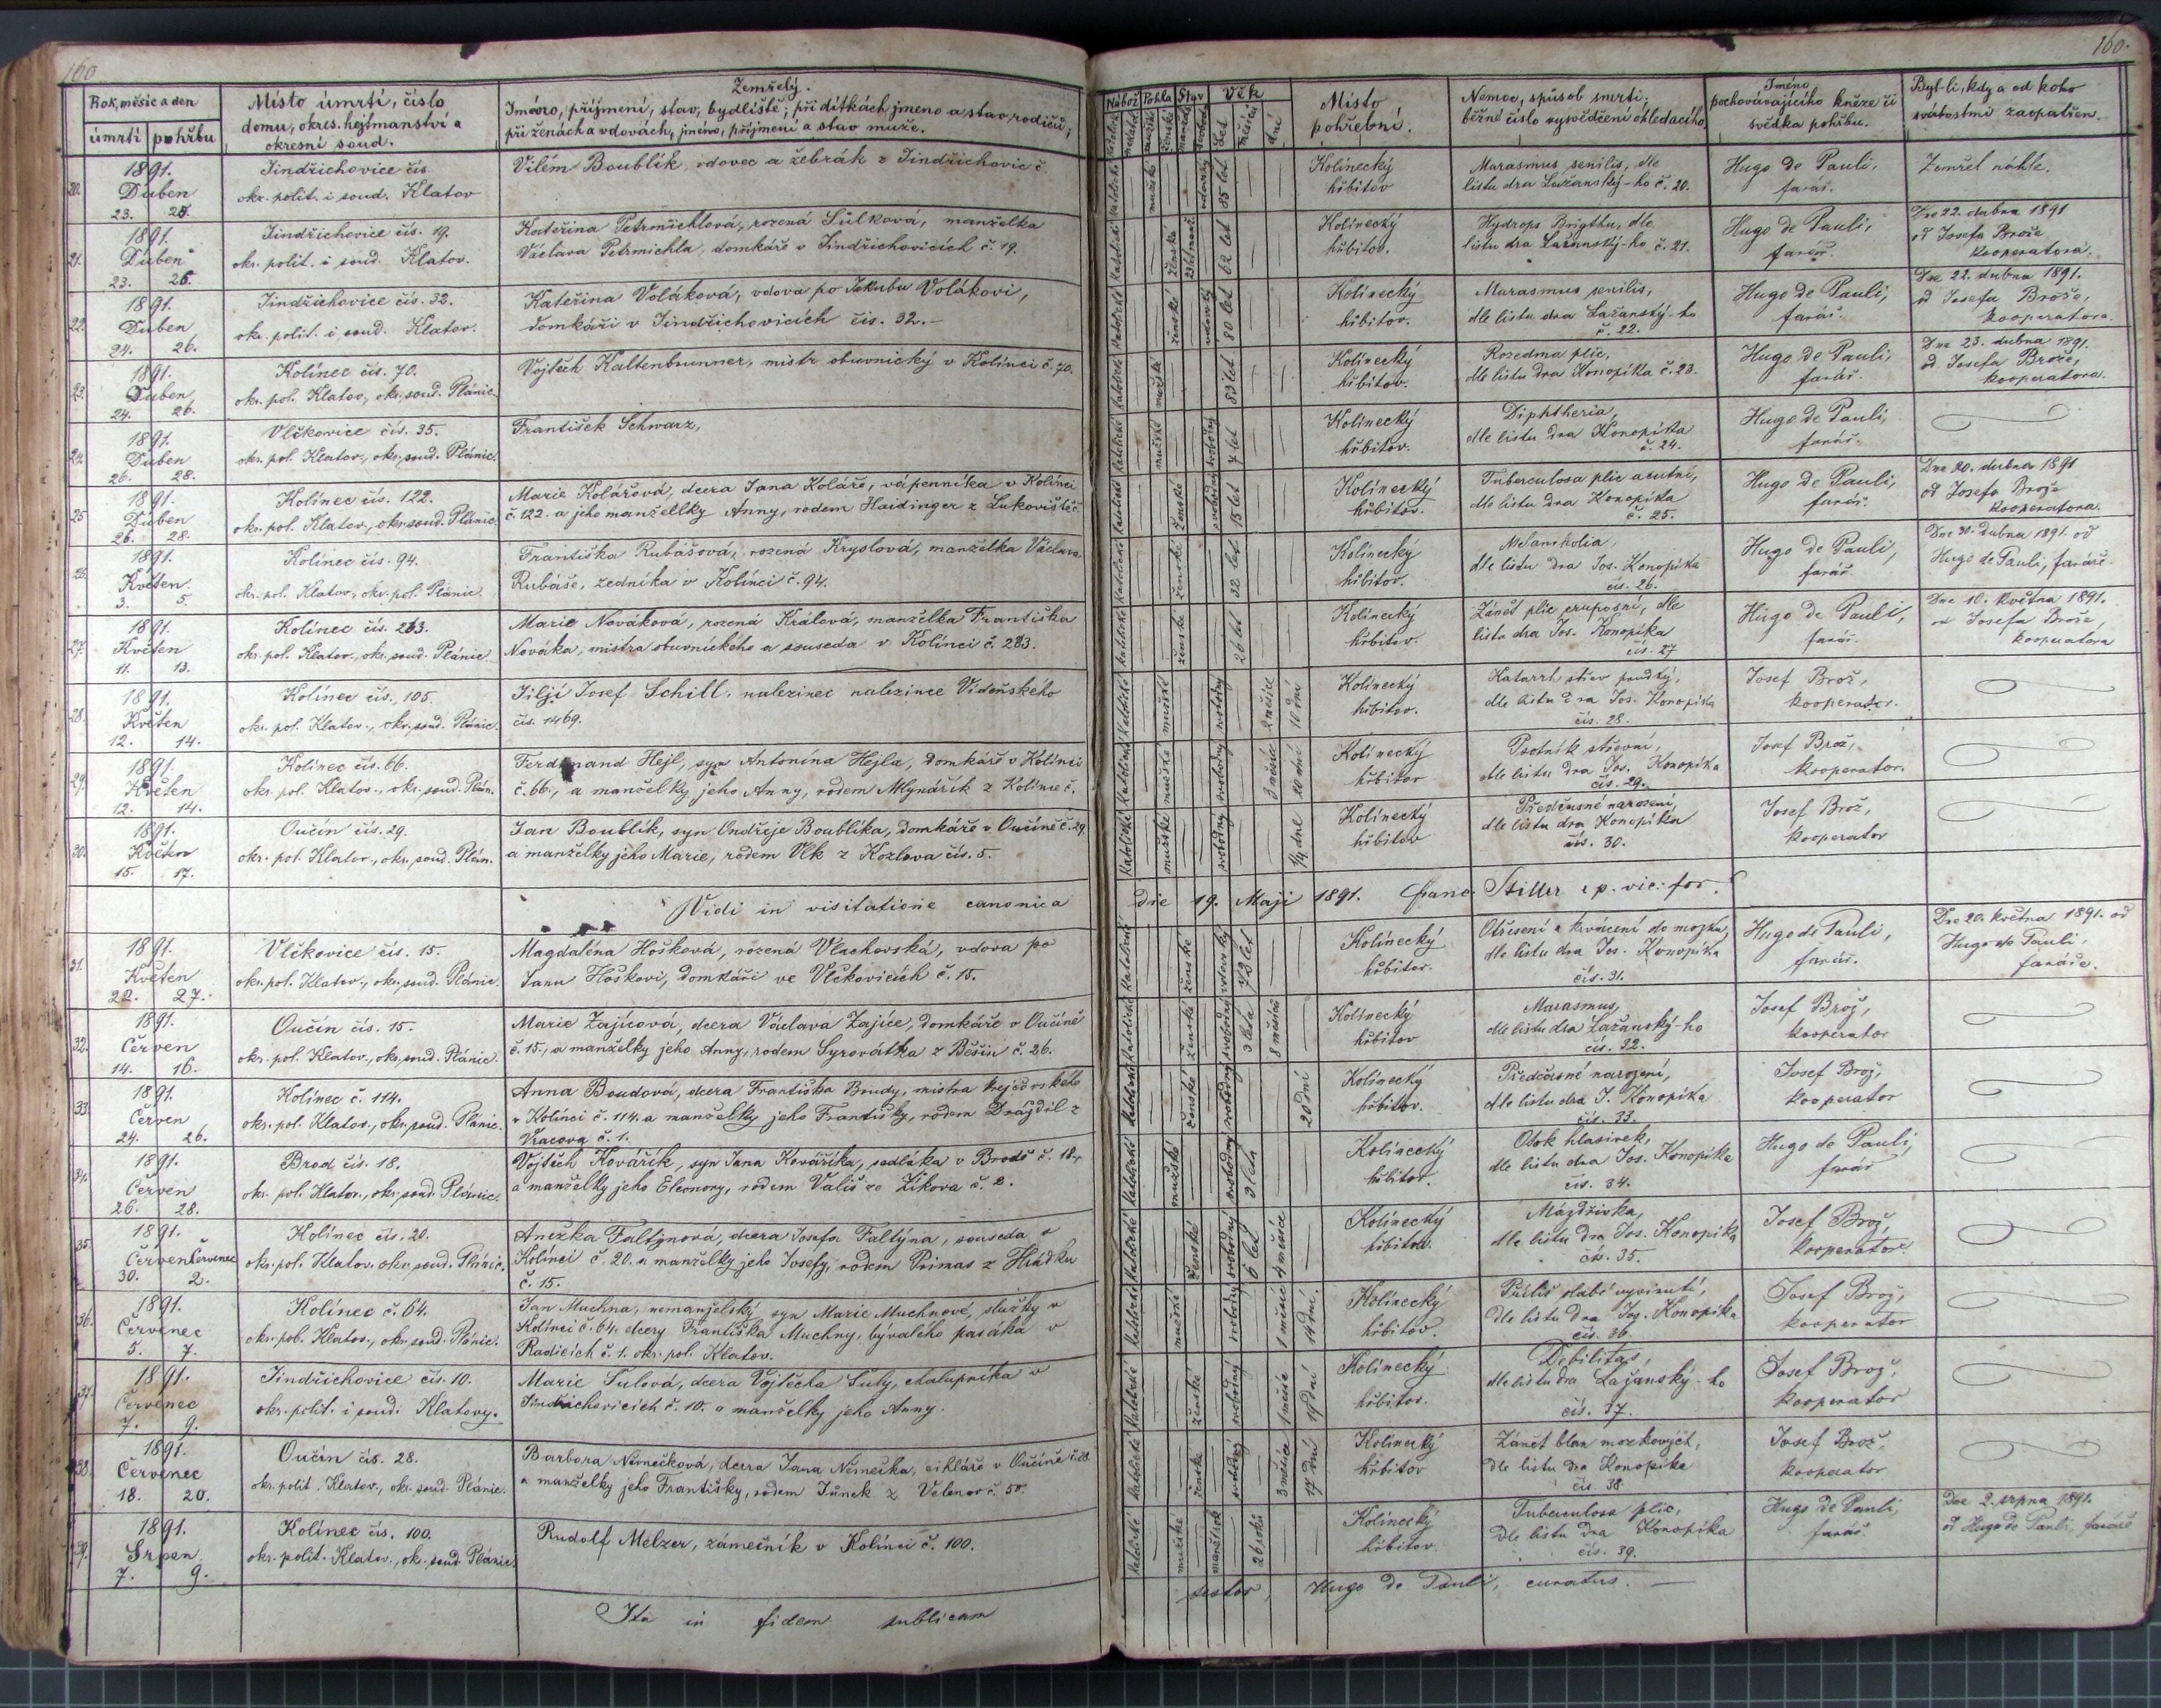 160
160.
Rok, měsíc a den
úmrtí pohřbu
Místo úmrtí, číslo
domu, okres. hejtmanství a
okresní soud.
Zemřelý.
Jméno, příjmení, stav, bydliště; při dítkách jmeno a stav rodičů;
při ženách a vdovách, jméno, příjmení a stav muže.
Nábož. Pohla. Stav Věk
Místo
pohřební.
Nemoc, spůsob smrti;
běžné číslo vysvědčení ohledacího.
Jméno
pochovávajícího kněze či
svědka pohřbu.
Byl-li, kdy a od koho
svátostmi zaopatřen.
20.
1891.
Duben
23. 25.
Jindřichovice čís.
okr. polit. i soud. Klatov
Vilém Boublík, vdovec a žebrák z Jindřichovic č.
katolické mužské vdovský 85 let
Kolínecký
hřbitov
Marasmus senilis, dle
listu dra Lažanský-ho č. 20.
Hugo de Pauli,
farář.
Zemřel náhle.
21.
1891.
Duben
23. 25.
Jindřichovice čís. 19.
okr. polit. i soud. Klatov.
Kateřina Petrmichlová, rozená Šůlková, manželka
Václava Petrmichla, domkáře v Jindřichovicích č. 19.
katolické ženské 62 let
Kolínecký
hřbitov.
Hydrops Brigthu, dle
listu dra Lažanský-ho č. 21.
Hugo de Pauli,
farář.
Dne 22. dubna 1891
od Josefa Brože
kooperatora.
22.
1891.
Duben
24. 26.
Jindřichovice čís. 32.
okr. polit. i soud. Klatov.
Kateřina Voláková, vdova po Jakubu Volákovi,
domkáři v Jindřichovicích čís. 32.
katolické ženské vdovský 80 let
Kolínecký
hřbitov.
Marasmus senilis,
dle listu dra Lažanský-ho
č. 22.
Hugo de Pauli,
farář.
Dne 22. dubna 1891.
od Josefa Brože,
kooperatora.
23.
1891.
Duben
24. 26.
Kolínec čís. 70.
okr. pol. Klatov, okr. soud. Plánic.
Vojtěch Kaltenbrunner, mistr obuvnický v Kolínci č. 70.
katolické mužské 83 let
Kolínecký
hřbitov.
Rozedma plic,
dle listu dra Konopíka č. 23.
Hugo de Pauli,
farář.
Dne 23. dubna 1891.
od Josefa Brože,
kooperatora.
24.
1891.
Duben
26. 28.
Vlčkovice čís. 35.
okr. pol. Klatov., okr. soud. Plánic.
František Schwarz,
katolické mužské svobodný 7 let
Kolínecký
hřbitov.
Diphtheria,
dle listu dra Konopíka
č. 24.
Hugo de Pauli,
farář.
25
1891.
Duben
26. 28.
Kolínec čís. 122.
okr. pol. Klatov., okr. soud. Plánic.
Marie Kolářová, dcera Jana Koláře, vápenníka v Kolínci
č. 122. a jeho manželky Anny, rodem Haidinger z Lukoviště č.
katolické ženské svobodný 15 let
Kolínecký
hřbitov.
Tuberculosa plic acutní,
dle listu dra Konopíka
č. 25.
Hugo de Pauli,
farář.
Dne 20. dubna 1891
od Josefa Brože
kooperatora.
26.
1891.
Květen
3. 5.
Kolínec čís. 94.
okr. pol. Klatov, okr. pol. Plánic.
Františka Rubášová, rozená Kryslová, manželka Václava
Rubáše, zedníka v Kolínci č. 94.
katolické ženské 32 let
Kolínecký
hřbitov.
Melancholia,
dle listu dra Jos. Konopíka
čís. 26.
Hugo de Pauli,
farář
Dne 30. dubna 1891. od
Hugo de Pauli, faráře.
27.
1891.
Květen
11. 13.
Kolínec čís. 233.
okr. pol. Klatov., okr. soud. Plánic
Marie Nováková, rozená Králová, manželka Františka
Nováka, mistra obuvnického a souseda v Kolínci č. 233.
katolické ženské 26 let
Kolínecký
hřbitov.
Zánět plic cruposní, dle
listu dra Jos. Konopíka
čís. 27
Hugo de Pauli,
farář.
Dne 10. května 1891.
od Josefa Brože,
kooperatora
28.
1891.
Květen
12. 14.
Kolínec čís. 105.
okr. pol. Klatov., okr. soud. Plánic.
Jiljí Josef Schill, nalezinec nalezince Vídeňského
čís. 1469.
katolické mužské svobodný 2 měsíce 10 dní
Kolínecký
hřbitov.
Katarrh střev prudký,
dle listu dra Jos. Konopíka
čís. 28.
Josef Brož,
kooperator.
29.
1891.
Květen
12. 14.
Kolínec čís. 66.
okr. pol. Klatov., okr. soud. Plán.
Ferdinand Hejl, syn Antonína Hejla, domkáře v Kolínci
č. 66., a manželky jeho Anny, rodem Mlynářík z Kolince č.
katolické mužské svobodný 3 měsíce 20 dní
Kolínecký
hřbitov
Psotník střevní,
dle listu dra Jos. Konopíka
čís. 29.
Josef Brož,
kooperator.
30.
1891.
Květen
15. 17.
Oučín čís. 29.
okr. pol. Klatov., okr. soud. Plán.
Jan Boublík, syn Ondřeje Boublíka, domkáře v Oučíně č. 29
a manželky jeho Marie, rodem Vlk z Kozlova čís. 5.
katolické mužské svobodný 1/4 dne
Kolínecký
hřbitov
Předčasné narození,
dle listu dra Konopíka
čís. 30.
Josef Brož,
kooperator
Vidi in visitatione canonica die 19. Maji 1891. Stiller vic: for.
31.
1891.
Květen
22. 27.
Vlčkovice čís. 15.
okr. pol. Klatov., okr. soud. Plánic.
Magdaléna Hošková, rozená Vlachovská, vdova po
Janu Hoškovi, domkáři ve Vlčkovicích č. 15.
katolické ženské vdovský 72 let
Kolínecký
hřbitov.
Otřesení a krvácení do mozku,
dle listu dra Jos. Konopíka
čís. 31.
Hugo de Pauli,
farář.
Dne 20. května 1891. od
Hugo de Pauli,
faráře.
32.
1891.
Červen
14. 16.
Oučín čís. 15.
okr. pol. Klatov., okr. soud. Plánic.
Marie Zajícová, dcera Václava Zajíce, domkáře v Oučíně
č. 15., a manželky jeho Anny, rodem Syrovátka z Běšin č. 26.
katolické ženské svobodný 3 léta 8 měsíců
Kolínecký
hřbitov
Marasmus,
dle listu dra Lažanský-ho
čís. 32.
Josef Brož,
kooperator
33.
1891.
Červen
24. 26.
Kolínec č. 114.
okr. pol. Klatov., okr. soud. Plánic.
Anna Boudová, dcera Františka Boudy, mistra krejčovského
v Kolínci č. 114. a manželky jeho Františky, rodem Drajdil z
Vracova č. 1.
katolické ženské svobodný 20 dní
Kolínecký
hřbitov.
Předčasné narození,
dle listu dra J. Konopíka
čís. 33.
Josef Brož,
kooperator
34.
1891.
Červen
26. 28.
Brod čís. 18.
okr. pol. Klatov., okr. soud. Plánic.
Vojtěch Kovářík, syn Jana Kováříka, sedláka v Brodě č. 18.,
a manželky jeho Eleonory, rodem Vališ ze Zíkova č. 2.
katolické mužské svobodný 3 léta
Kolínecký
hřbitov.
Otok hlasivek,
dle listu dra Jos. Konopíka
čís. 34.
Hugo de Pauli,
farář
35.
1891.
Červen Červenec
30. 2.
Kolínec čís. 20.
okr. pol. Klatov. okr. soud. Plánic.
Anežka Faltýnová, dcera Josefa Faltýna, souseda v
Kolínci č. 20. a manželky jeho Josefy, rodem Primas z Hrádku
č. 15.
katolické ženské svobodný 6 let 4 měsíce
Kolínecký
hřbitov.
Mázdřivka,
dle listu dra Jos. Konopíka
čís. 35.
Josef Brož,
kooperator
36.
1891.
Červenec
5. 7.
Kolínec č. 64.
okr. pol. Klatov., okr. soud. Plánic.
Jan Muchna, nemanželský syn Marie Muchnové, služky v
Kolínci č. 64. dcery Františka Muchny, bývalého pasáka v
Radicích č. 1. okr. pol. Klatov.
katolické mužské svobodný 1 měsíc 14 dní.
Kolínecký
hřbitov.
Příliš slabé vyvinutí,
dle listu dra Jos. Konopíka
čís. 36.
Josef Brož,
kooperator
37.
1891.
Červenec
7. 9.
Jindřichovice čís. 10.
okr. polit. i soud. Klatovy.
Marie Šulová, dcera Vojtěcha Šuly, chalupníka v
Jindřichovicích č. 10. a manželky jeho Anny.
katolické ženské svobodný 1 měsíc 19 dní
Kolínecký
hřbitov.
Debilitas,
dle listu dra Lažanský-ho
čís. 37.
Josef Brož,
kooperator
38.
1891.
Červenec
18. 20.
Oučín čís. 28.
okr. polit. Klatov., okr. soud. Plánic.
Barbora Němečková, dcera Jana Němečka, cihláře v Oučíně č. 28.
a manželky jeho Františky, rodem Junek z Velenov č. 50.
katolické ženské svobodný 3 měsíce 17 dní
Kolínecký
hřbitov
Zánět blan mozkových,
dle listu dra Konopíka
čís. 38.
Josef Brož,
kooperator
39.
1891.
Srpen
7. 9.
Kolínec čís. 100.
okr. polit. Klatov., ok. soud. Plánic.
Rudolf Melzer, zámečník v Kolínci č. 100.
katolické mužské manželský 26 roků
Kolínecký
hřbitov.
Tuberculosa plic,
dle listu dra Konopíka
čís. 39.
Hugo de Pauli,
farář.
Dne 2. srpna 1891.
od Hugo de Pauli, faráře
Ita in fidem publicam testor, Hugo de Pauli, curatus.